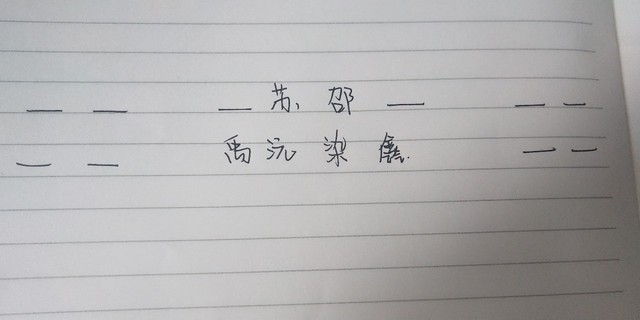 — — — 苏、邵 — — —
— — 禹沅梁 — —